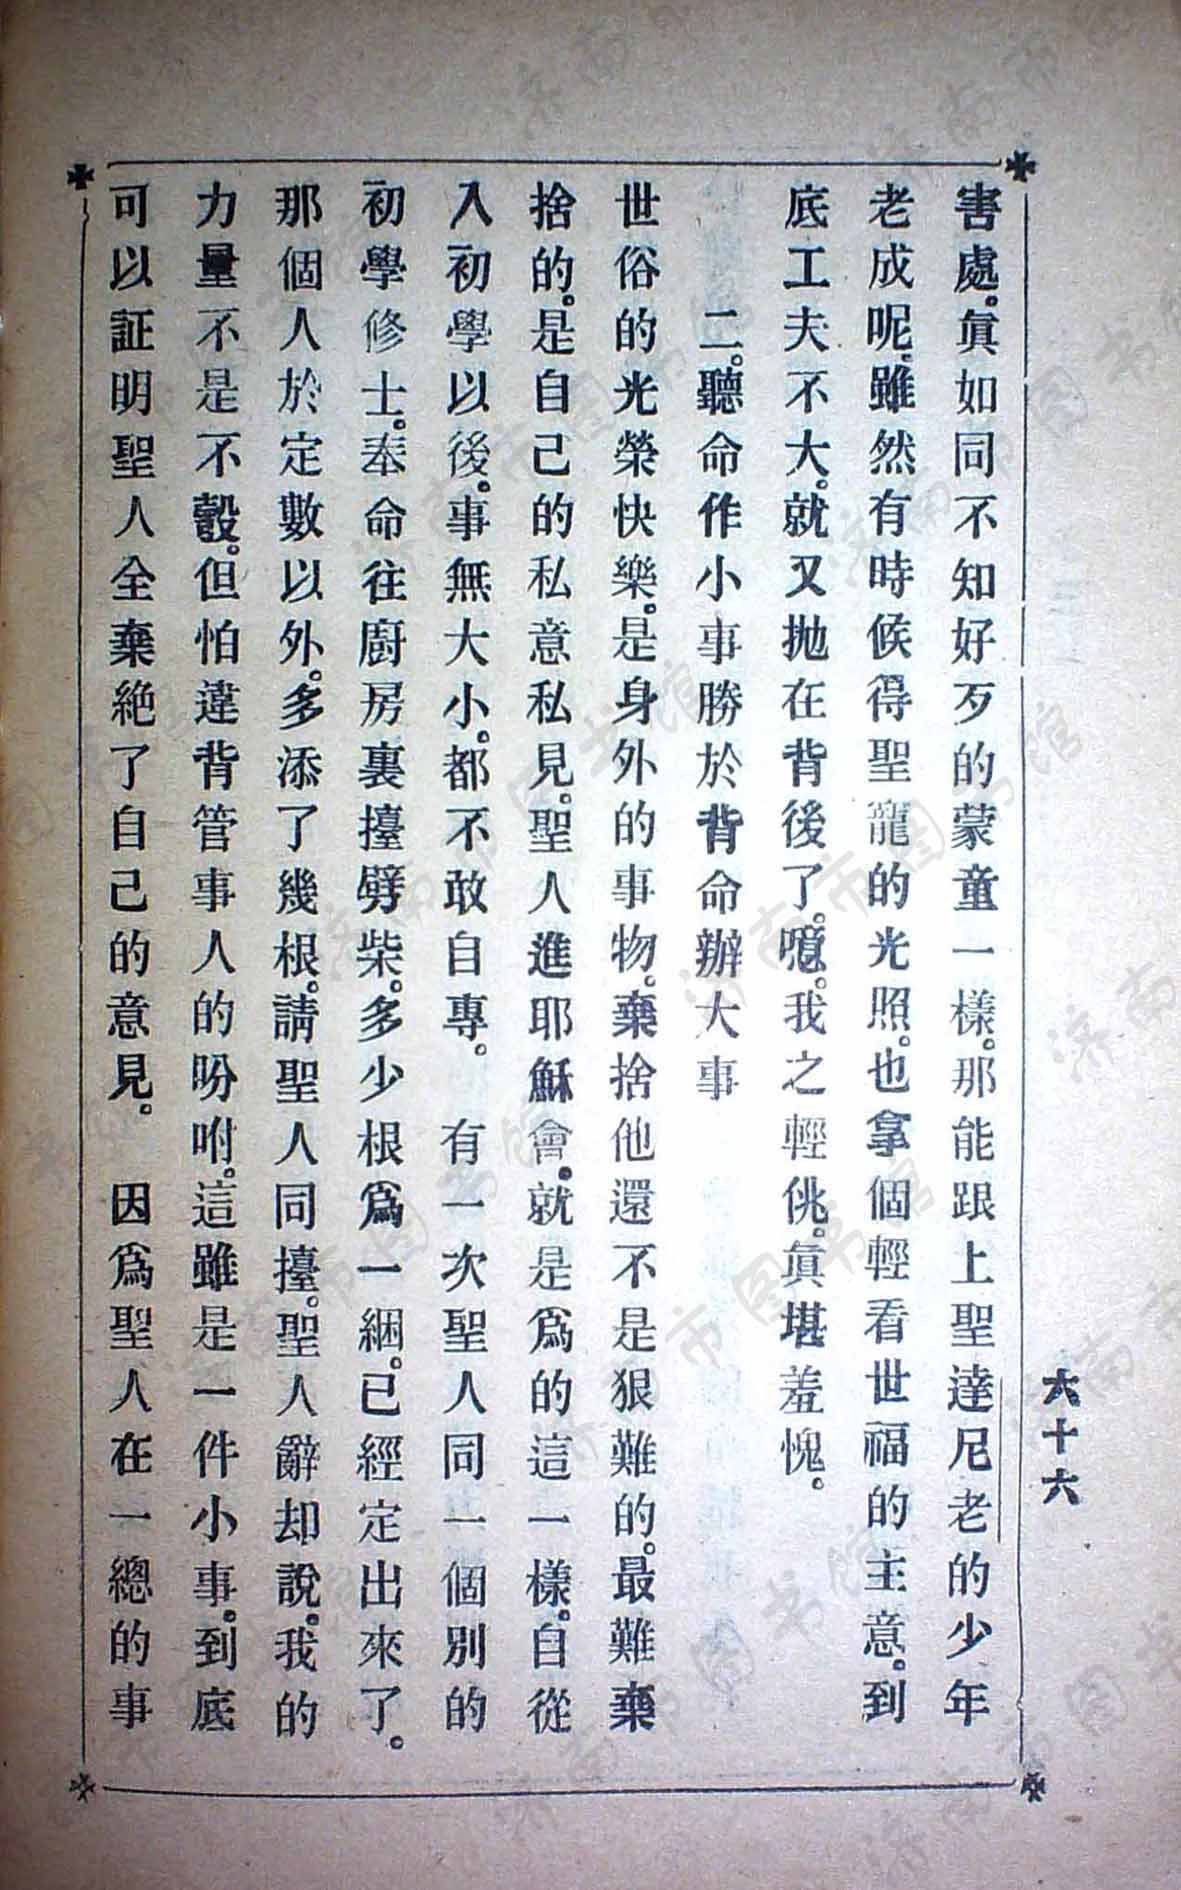 害處。眞如同不知好歹的蒙童一樣。那能跟上聖達尼老的少年
老成呢。雖然有時候得聖寵的光照。也拿個輕看世福的主意。到
底工夫不大。就又抛在背後了。噫。我之輕佻。眞堪羞愧。
二。聽命作小事勝於背命辦大事
世俗的光榮快樂。是身外的事物。棄捨他還不是狠難的。最難棄
捨的。是自己的私意私見。聖人進耶穌會。就是爲的這一樣。自從
入初學以後。事無大小。都不敢自專。 有一次聖人同一個別的
初學修士。奉命往廚房裏擡劈柴。多少根爲一綑。已經定出來了。
那個人於定數以外。多添了幾根。請聖人同擡。聖人辭却說。我的
力量不是不彀。但怕違背管事人的吩咐。這雖是一件小事。到底
可以証明聖人全棄絶了自己的意見。 因爲聖人在一總的事
六十六